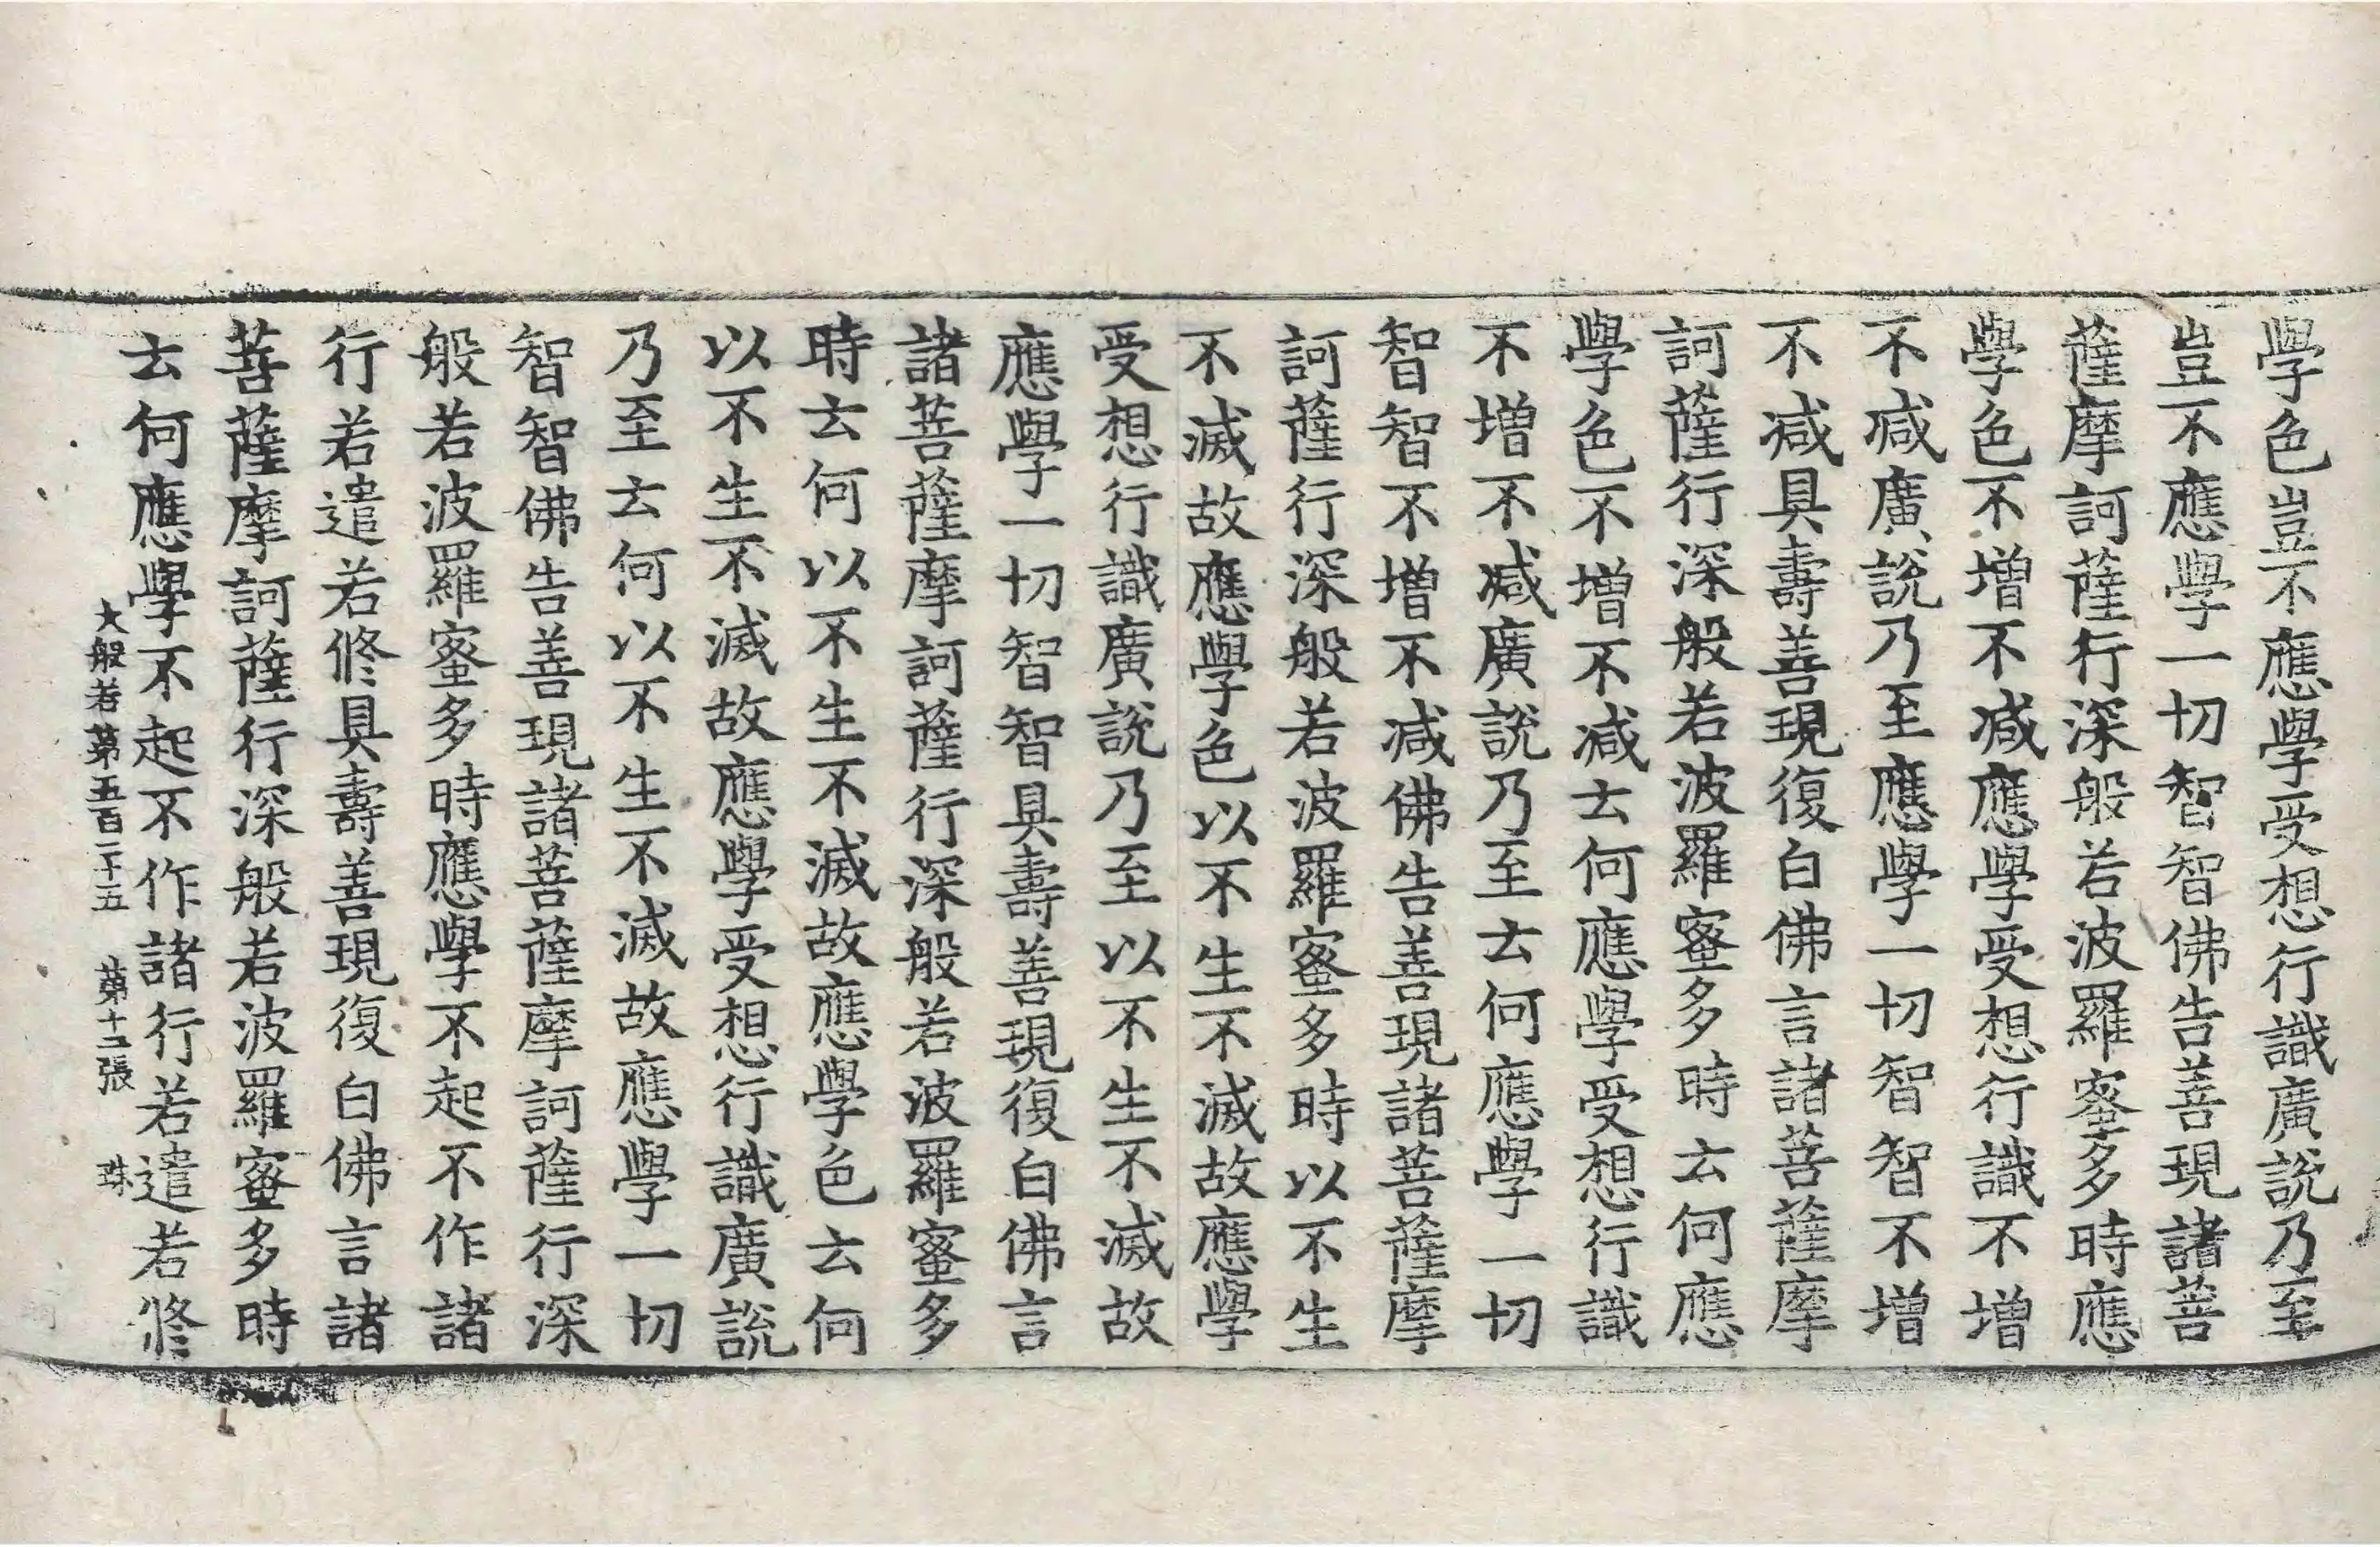 學色豈不應學受想行識廣說乃至
豈不應學一切智智佛告善現諸菩
薩摩訶薩行深般若波羅蜜多時應
學色不增不減應學受想行識不增
不減廣說乃至應學一切智智不增
不減具壽善現復白佛言諸菩薩摩
訶薩行深般若波羅蜜多時云何應
學色不增不減云何應學受想行識
不增不減廣說乃至云何應學一切
智智不增不減佛告善現諸菩薩摩
訶薩行深般若波羅蜜多時以不生
不滅故應學色以不生不滅故應學
受想行識廣說乃至以不生不滅故
應學一切智智具壽善現復白佛言
諸菩薩摩訶薩行深般若波羅蜜多
時云何以不生不滅故應學色云何
以不生不滅故應學受想行識廣說
乃至云何以不生不滅故應學一切
智智佛告善現諸菩薩摩訶薩行深
般若波羅蜜多時應學不起不作諸
行若遣若修具壽善現復白佛言諸
菩薩摩訶薩行深般若波羅蜜多時
云何應學不起不作諸行若遣若修
大般若第五百二十五 第十二張 珠